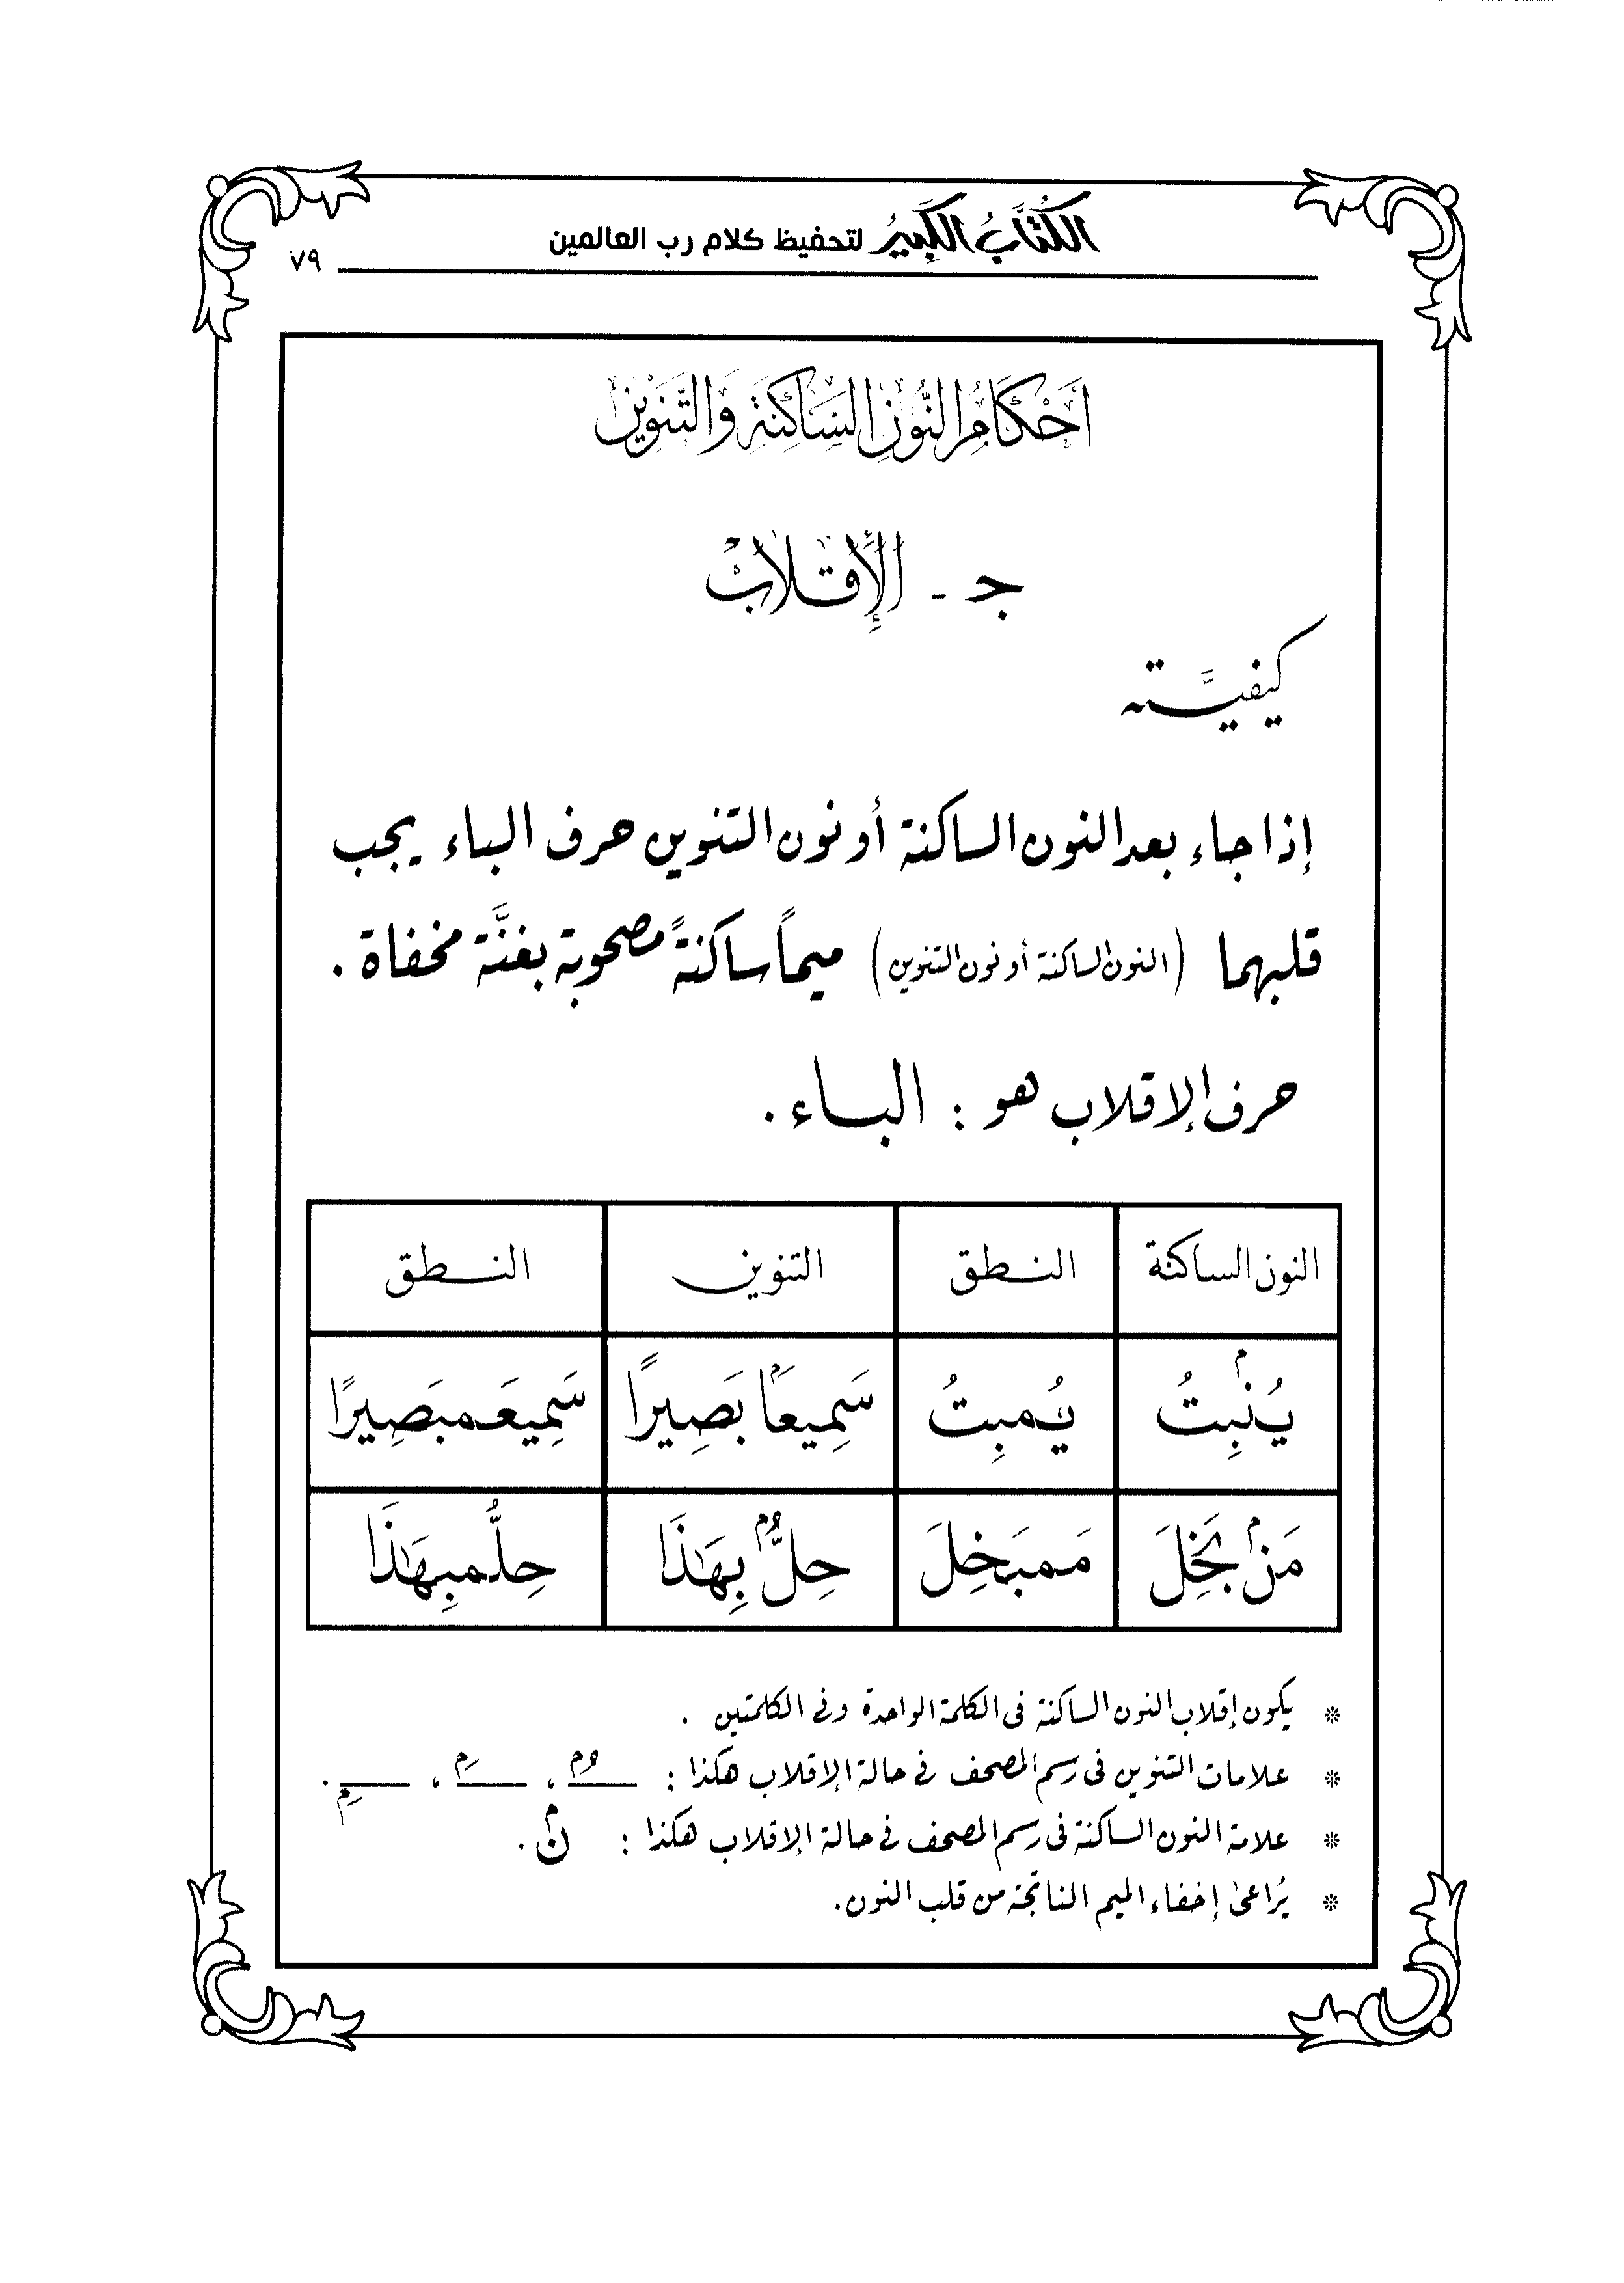 الكُتَّابُ الكَبِيرُ لتحفيظ كلام رب العالمين
٧٩
أَحْكَامُ النُّونِ السَّاكِنَةِ وَالتَّنْوِينِ
جـ - الإِقْلَابُ
كيفيَّته
إذا جاء بعد النون الساكنة أو نون التنوين حرف الباء يجب
قلبهما (النون الساكنة أو نون التنوين) ميماً ساكنةً مصحوبة بغنَّة مخفاة .
حرف الإقلاب هو : البـاء .
النون الساكنة النـطق التنوين النـطق
يُنۢبِتُ يُـمبِتُ سَمِيعَۢا بَصِيرًا سَمِيعَـمبَصِيرًا
مَنۢ بَخِلَ مَـمبَخِلَ حِلُّۢ بِهَٰذَا حِلُّـمبِهَٰذَا
* يكون إقلاب النون الساكنة فى الكلمة الواحدة وفى الكلمتين .
* علامات التنوين فى رسم المصحف فى حالة الإقلاب هكذا : ـُۢ ، ـَۢ ، ـِۭ .
* علامة النون الساكنة فى رسم المصحف فى حالة الإقلاب هكذا : نۢ .
* يُراعىٰ إخفاء الميم الناتجة من قلب النون.